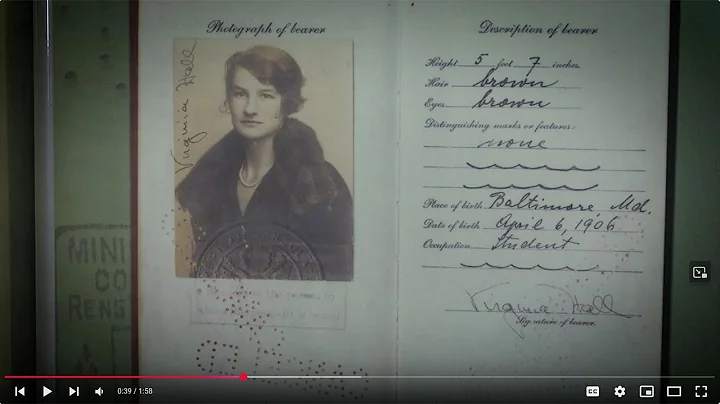 Photograph of bearer
Virginia Hall
Description of bearer
Height 5 feet 7 inches.
Hair brown
Eyes brown
Distinguishing marks or features:
none
Place of birth Baltimore Md.
Date of birth April 6, 1906
Occupation Student
Virginia Hall
Signature of bearer.
MINI
CO
RENS
0:39 / 1:58
CC